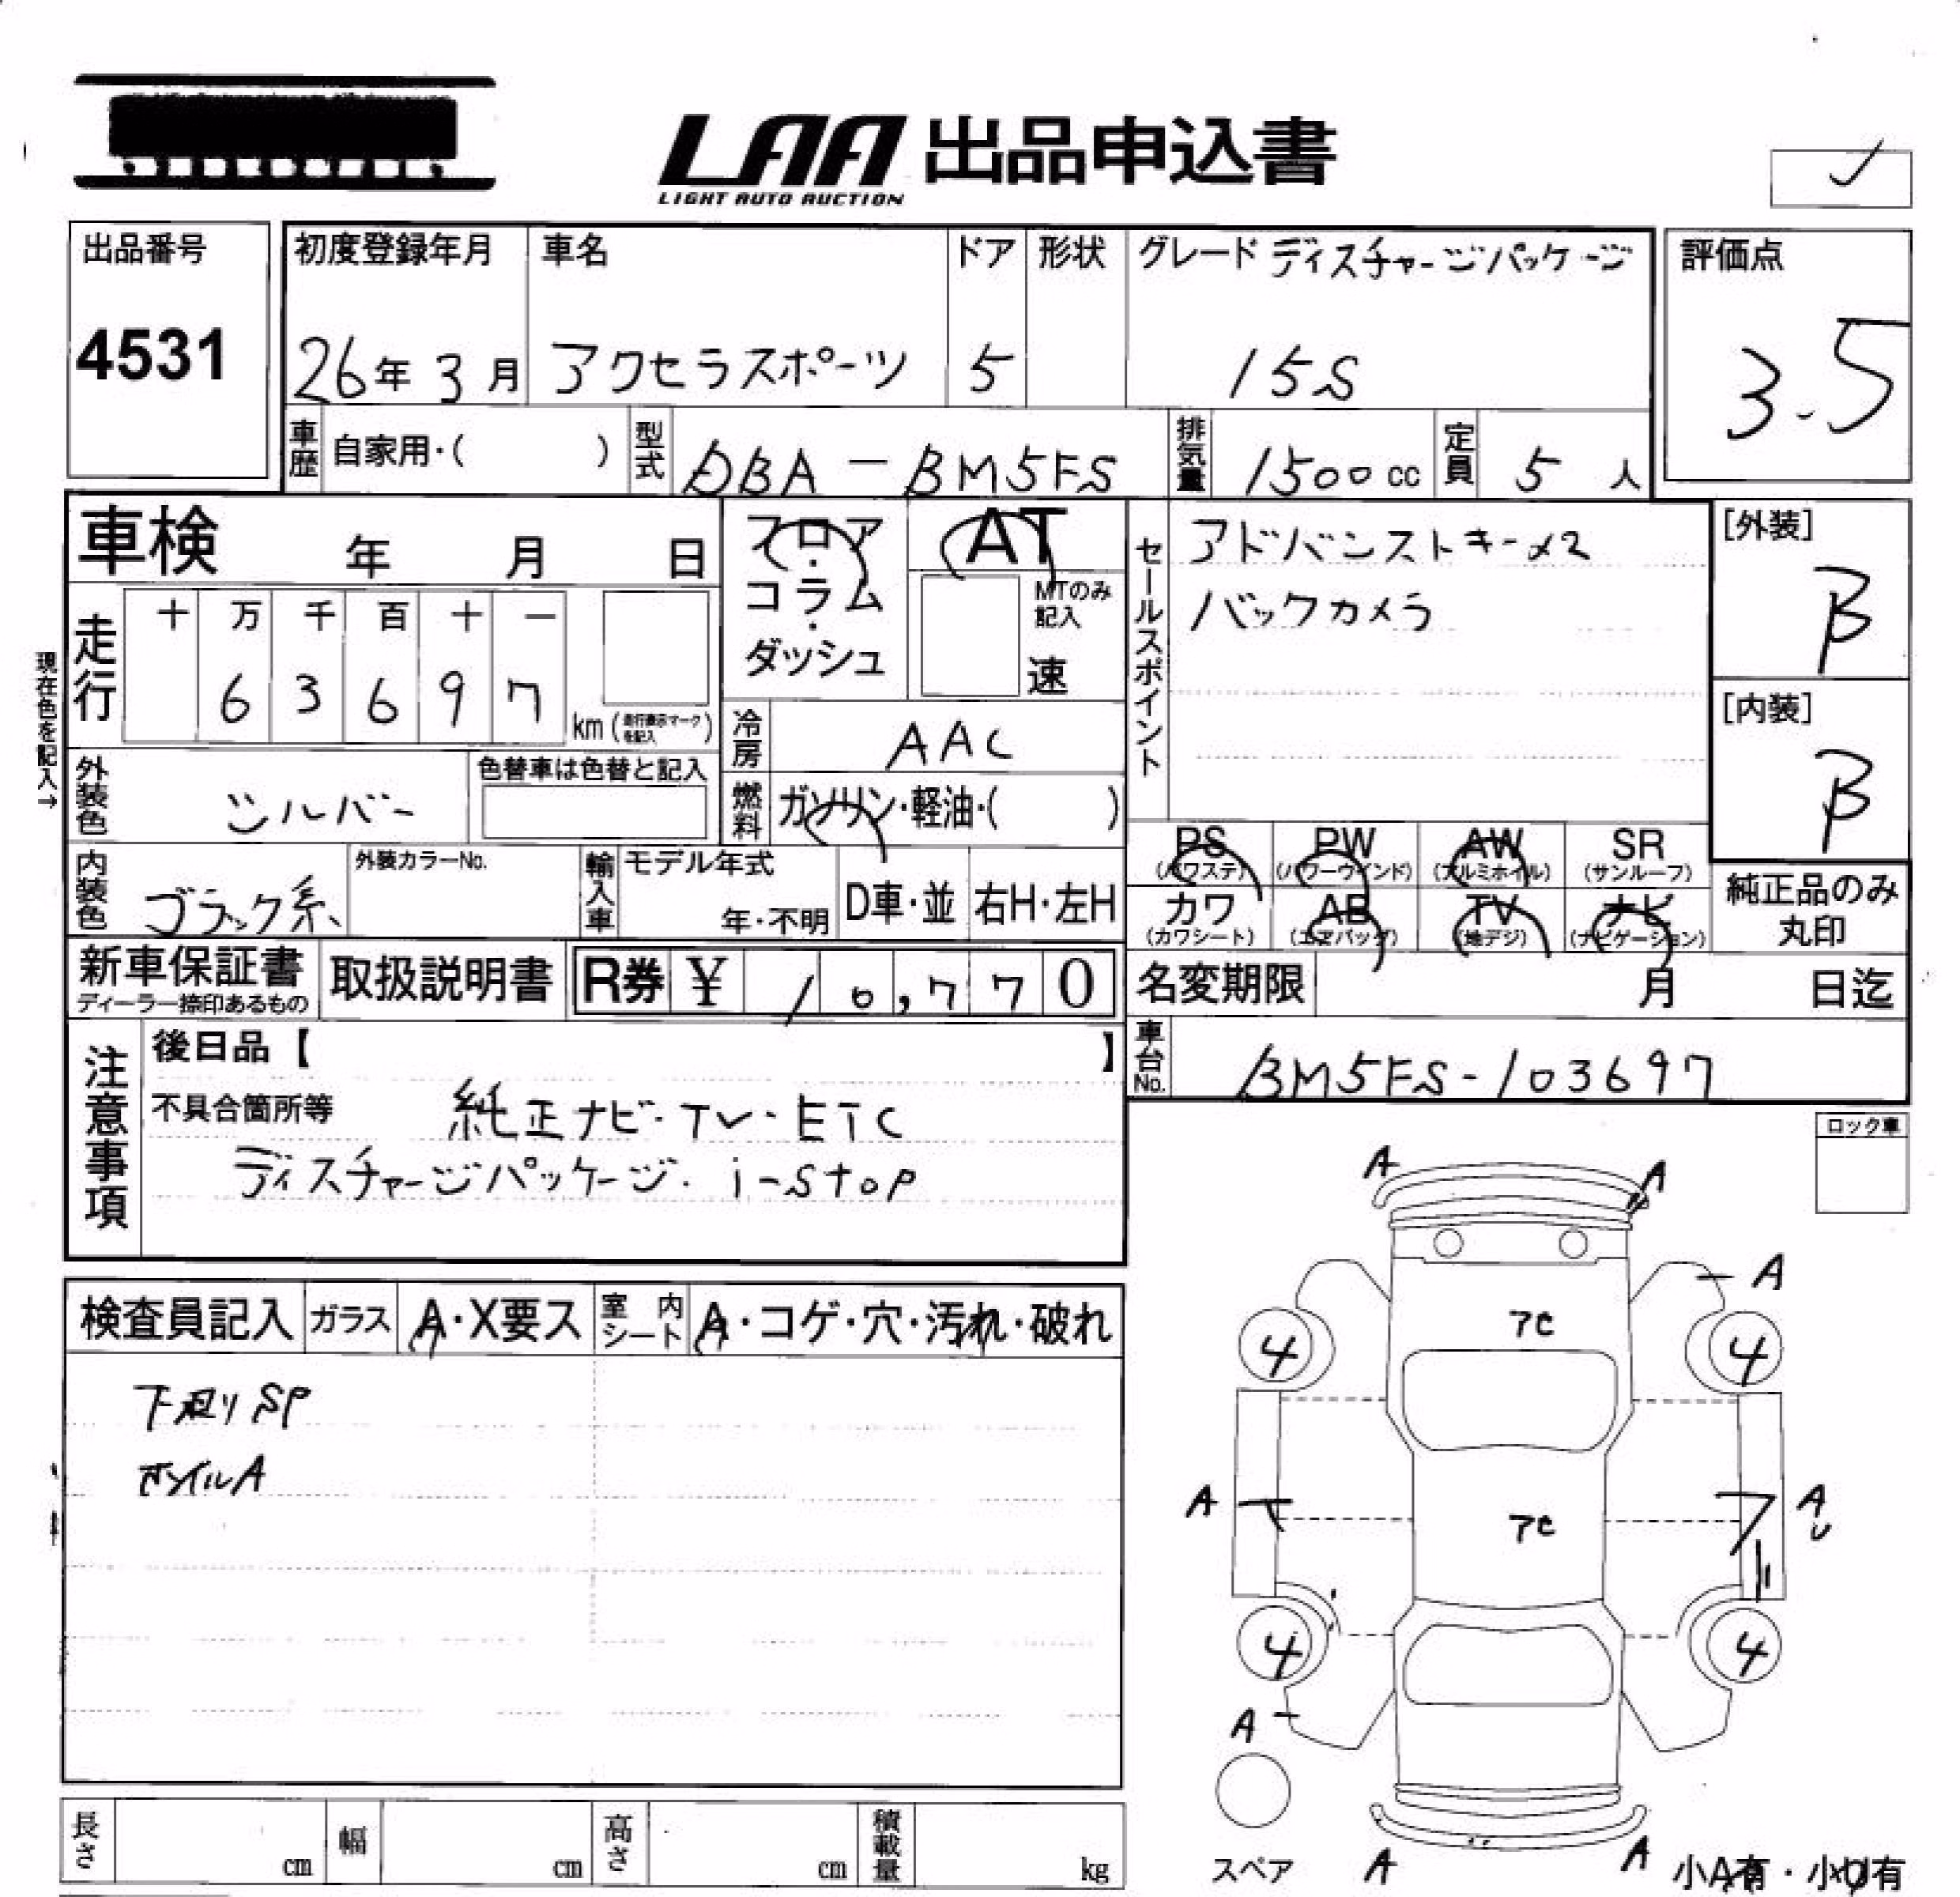 LAA 出品申込書
LIGHT AUTO AUCTION
出品番号
4531
初度登録年月
26年 3月
車名
アクセラスポーツ
ドア
5
形状
グレード ディスチャージパッケージ
15S
評価点
3.5
車歴 自家用・( )
型式 DBA-BM5FS
排気量 1500cc
定員 5人
車検 年 月 日
フロア・コラム・ダッシュ
AT
MTのみ記入
速
セールスポイント
アドバンストキーx2
バックカメラ
[外装]
B
[内装]
B
現在色を記入→
走行
十 万 千 百 十 一
6 3 6 9 7
km (走行表示マークを記入)
冷房 AAC
外装色 シルバー
色替車は色替と記入
燃料 ガソリン・軽油・( )
内装色 ブラック系
外装カラーNo.
輸入車 モデル年式
年・不明
D車・並
右H・左H
PS (パワステ)
PW (パワーウインド)
AW (アルミホイル)
SR (サンルーフ)
カワ (カワシート)
AB (エアバッグ)
TV (地デジ)
ナビ (ナビゲーション)
純正品のみ丸印
新車保証書
ディーラー捺印あるもの
取扱説明書
R券 ¥ 10,770
名変期限 月 日迄
車台No. BM5FS-103697
注意事項
後日品【 】
不具合箇所等 純正ナビ・TV・ETC
ディスチャージパッケージ・i-stop
ロック車
検査員記入
ガラス A・X要ス
室内シート A・コゲ・穴・汚れ・破れ
下廻りSP
ホイルA
A A
A
アC
4 4
A A
U
アC
4 4
A
スペア
A A
小A有・小U有
長さ cm
幅 cm
高さ cm
積載量 kg